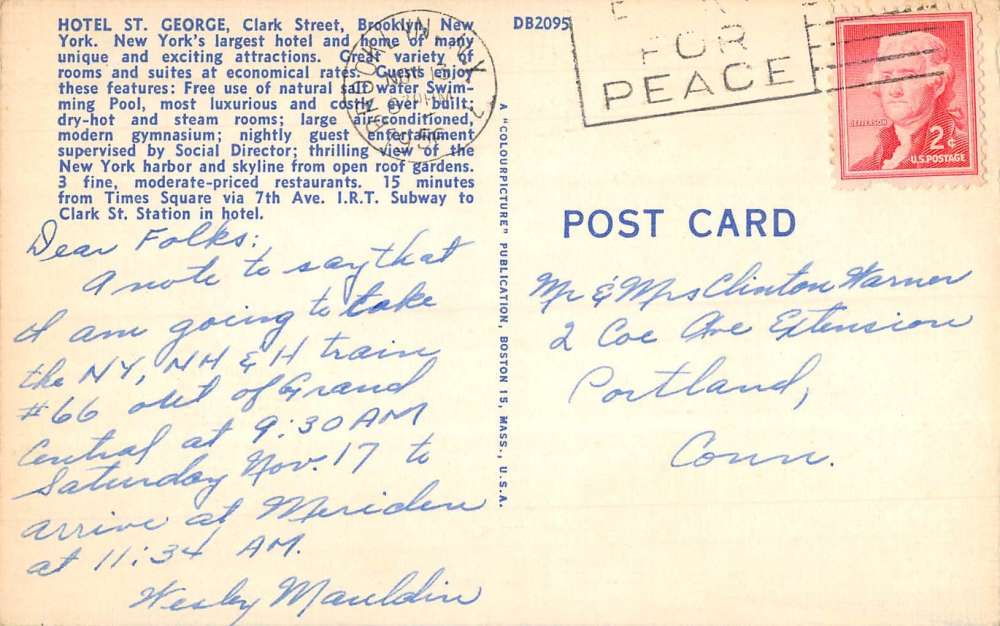 HOTEL ST. GEORGE, Clark Street, Brooklyn, New
York. New York's largest hotel and home of many
unique and exciting attractions. Great variety of
rooms and suites at economical rates. Guests enjoy
these features: Free use of natural salt water Swim-
ming Pool, most luxurious and costly ever built;
dry-hot and steam rooms; large air-conditioned,
modern gymnasium; nightly guest entertainment
supervised by Social Director; thrilling view of the
New York harbor and skyline from open roof gardens.
3 fine, moderate-priced restaurants. 15 minutes
from Times Square via 7th Ave. I.R.T. Subway to
Clark St. Station in hotel.
Dear Folks:
A note to say that
I am going to take
the NY, NH & H train
#66 out of Grand
Central at 9:30 AM
Saturday Nov. 17 to
arrive at Meriden
at 11:34 AM.
Wesley Mauldin
A "COLOURPICTURE" PUBLICATION, BOSTON 15, MASS., U.S.A.
DB2095
BROOKLYN, N.Y.
NOV 13
PM
FOR
PEACE
JEFFERSON
2¢
U.S. POSTAGE
POST CARD
Mr & Mrs Clinton Warner
2 Coe Ave Extension
Portland,
Conn.